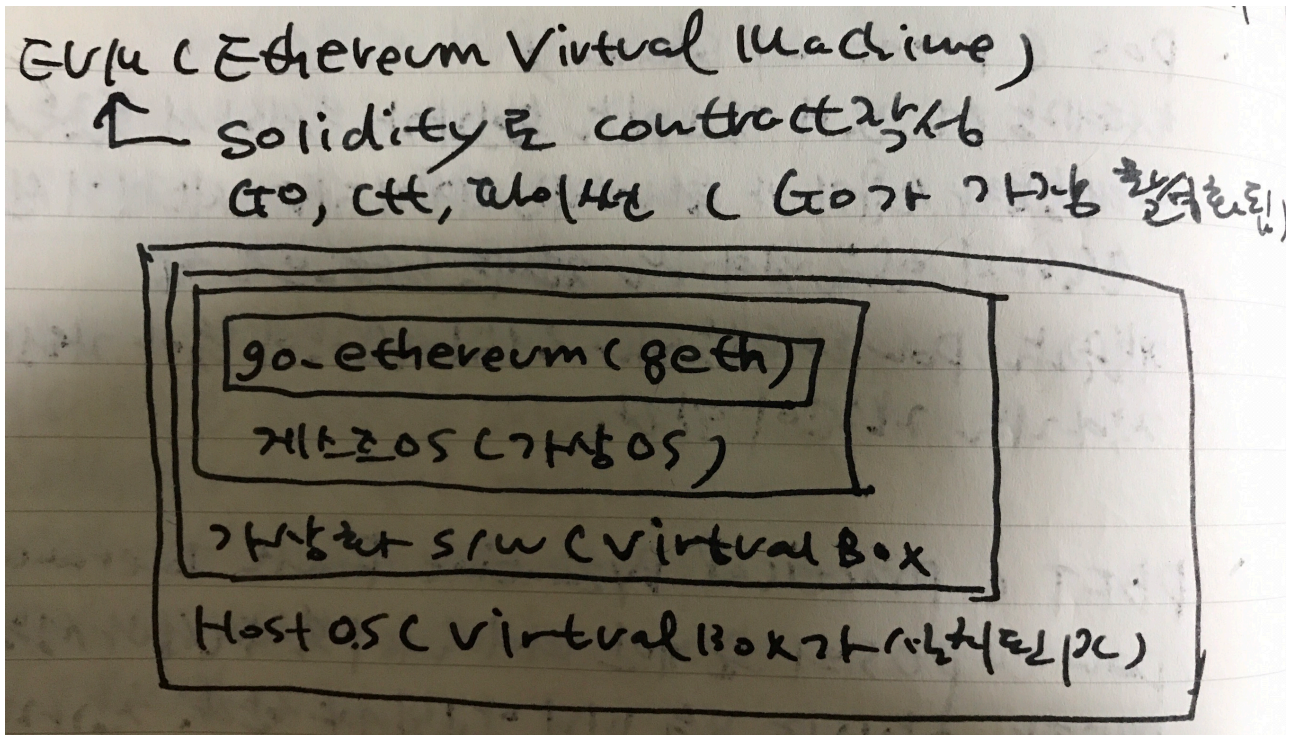 EVM ( Ethereum Virtual Machine )
solidity로 contract작성
Go, C++, 파이썬 ( Go가 가장 활성화됨)
go-ethereum (geth)
게스트OS (가상OS)
가상화 S/W ( Virtual Box
Host OS ( Virtual Box가 설치된 PC )